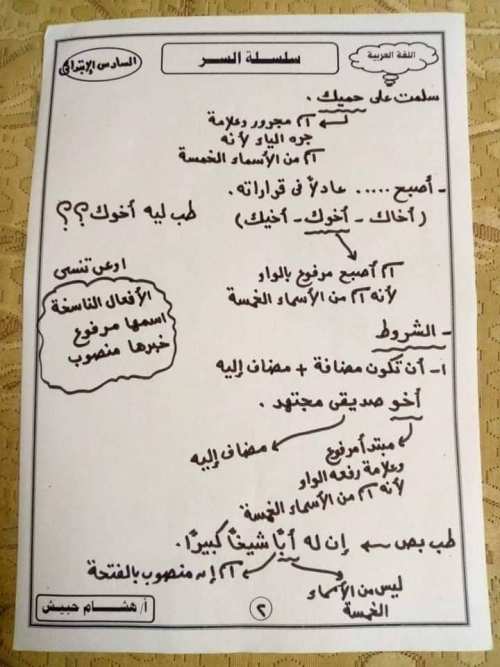 اللغة العربية
سلسلة السر
السادس الإبتدائى
سلمت على حميك .
اسم مجرور وعلامة
جره الياء لأنه
اسم من الأسماء الخمسة
- أصبح ..... عادلاً فى قراراته.
(أخاك - أخوك - أخيك) طب ليه أخوك؟؟
اسم أصبح مرفوع بالواو
لأنه اسم من الأسماء الخمسة
اوعى تنسى
الأفعال الناسخة
اسمها مرفوع
خبرها منصوب
- الشروط
١- أن تكون مضافة + مضاف إليه
أخو صديقى مجتهد .
مضاف إليه
مبتدأ مرفوع
وعلامة رفعه الواو
لأنه اسم من الأسماء الخمسة
طب بص ← إن له أبًا شيخًا كبيرًا.
اسم إن منصوب بالفتحة
ليس من الأسماء
الخمسة
٢
أ/ هشام حبيش